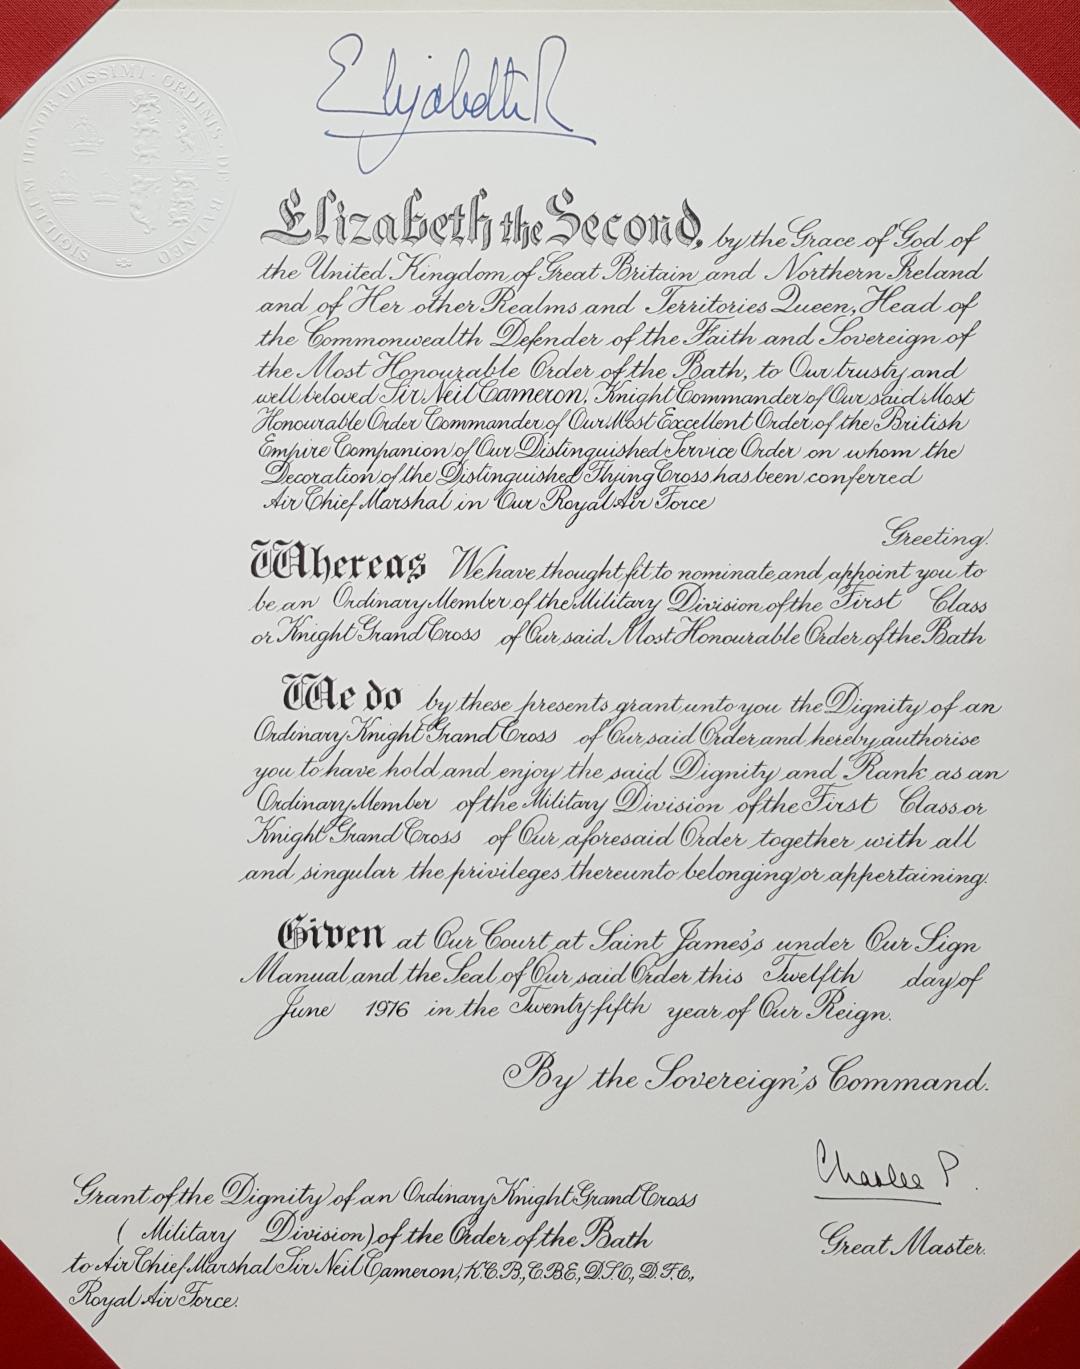 Elizabeth R
SIGILLUM HONORATISSIMI · ORDINIS · DE BALNEO
Elizabeth the Second, by the Grace of God of
the United Kingdom of Great Britain and Northern Ireland
and of Her other Realms and Territories Queen, Head of
the Commonwealth Defender of the Faith and Sovereign of
the Most Honourable Order of the Bath, to Our trusty and
well beloved Sir Neil Cameron, Knight Commander of Our said Most
Honourable Order Commander of Our Most Excellent Order of the British
Empire Companion of Our Distinguished Service Order on whom the
Decoration of the Distinguished Flying Cross has been conferred
Air Chief Marshal in Our Royal Air Force
Greeting.
Whereas We have thought fit to nominate and appoint you to
be an Ordinary Member of the Military Division of the First Class
or Knight Grand Cross of Our said Most Honourable Order of the Bath
We do by these presents grant unto you the Dignity of an
Ordinary Knight Grand Cross of Our said Order and hereby authorise
you to have hold and enjoy the said Dignity and Rank as an
Ordinary Member of the Military Division of the First Class or
Knight Grand Cross of Our aforesaid Order together with all
and singular the privileges thereunto belonging or appertaining.
Given at Our Court at Saint James's under Our Sign
Manual and the Seal of Our said Order this Twelfth day of
June 1976 in the Twenty-fifth year of Our Reign.
By the Sovereign's Command.
Charles P.
Great Master.
Grant of the Dignity of an Ordinary Knight Grand Cross
( Military Division) of the Order of the Bath
to Air Chief Marshal Sir Neil Cameron, K.C.B., C.B.E., D.S.O., D.F.C.,
Royal Air Force.